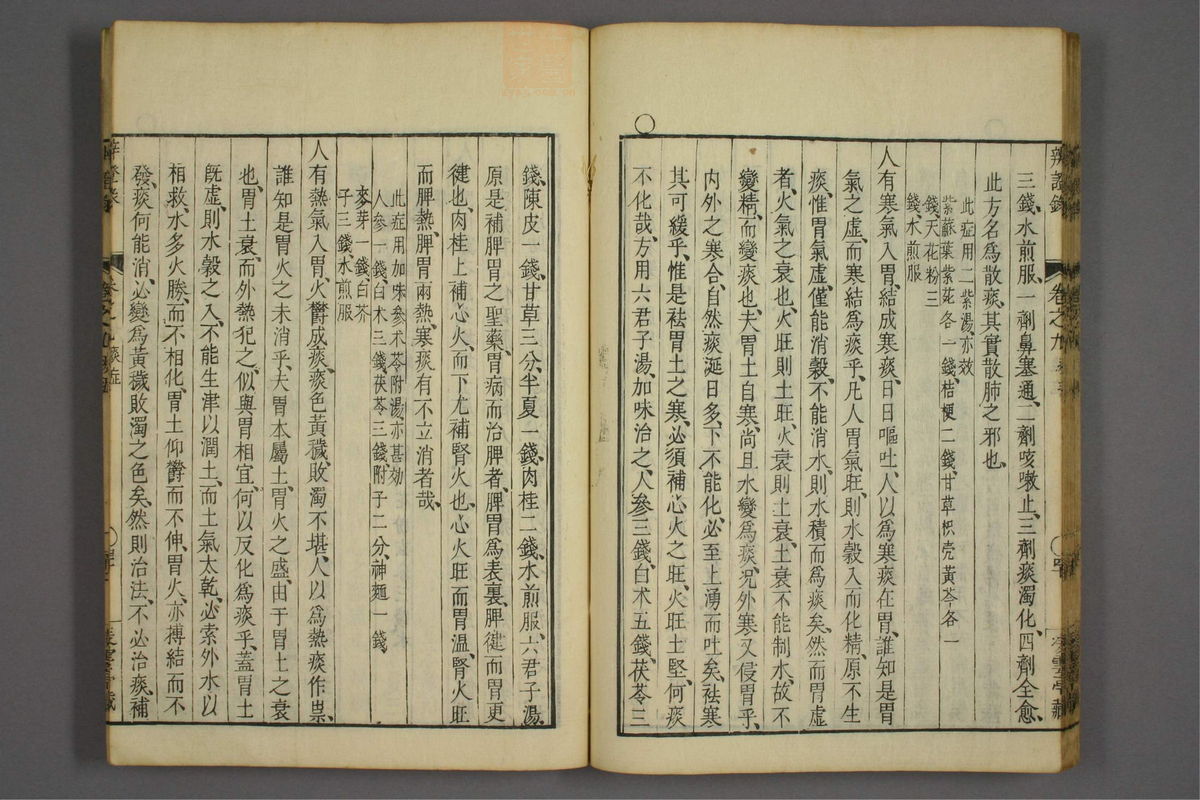 三錢、水煎服、一劑鼻塞通、二劑咳嗽止、三劑痰濁化、四劑全愈、
此方名爲散痰、其實散肺之邪也、
此症用二紫湯、亦效
紫蘇葉紫菀各一錢、桔梗二錢、甘草枳壳黃芩各一
錢、天花粉三
錢、水煎服
人有寒氣入胃、結成寒痰、日日嘔吐、人以爲寒痰在胃、誰知是胃
氣之虛、而寒結爲痰乎、凡人胃氣旺、則水穀入而化精、原不生
痰、惟胃氣虛、僅能消穀、不能消水、則水積而爲痰矣、然而胃虛
者、火氣之衰也、火旺則土旺、火衰則土衰、土衰不能制水、故不
變精、而變痰也、夫胃土自寒、尚且水變爲痰、况外寒又侵胃乎、
內外之寒合、自然痰涎日多、下不能化、必至上湧而吐矣、袪寒
其可緩乎、惟是袪胃土之寒、必須補心火之旺、火旺土堅、何痰
不化哉、方用六君子湯、加味治之、人參三錢、白术五錢、茯苓三
錢、陳皮一錢、甘草三分、半夏一錢、肉桂二錢、水煎服、六君子湯、
原是補脾胃之聖藥、胃病而治脾者、脾胃爲表裏、脾健而胃更
健也、肉桂上補心火、而下尤補腎火也、心火旺而胃溫、腎火旺
而脾熱、脾胃兩熱、寒痰有不立消者哉、
此症用加味參术苓附湯、亦甚効
人參一錢、白术三錢、茯苓三錢、附子二分、神麯一錢
麥芽一錢、白芥
子三錢、水煎服
人有熱氣入胃、火鬱成痰、痰色黃穢、敗濁不堪、人以爲熱痰作祟、
誰知是胃火之未消乎、夫胃本屬土、胃火之盛、由于胃土之衰
也、胃土衰、而外熱犯之、似與胃相宜、何以反化爲痰乎、蓋胃土
旣虛、則水穀之入、不能生津以潤土、而土氣太乾、必索外水以
相救、水多火勝、而不相化、胃土仰鬱而不伸、胃火亦搏結而不
發、痰何能消、必變爲黃穢敗濁之色矣、然則治法、不必治痰、補
辨證錄
卷之九